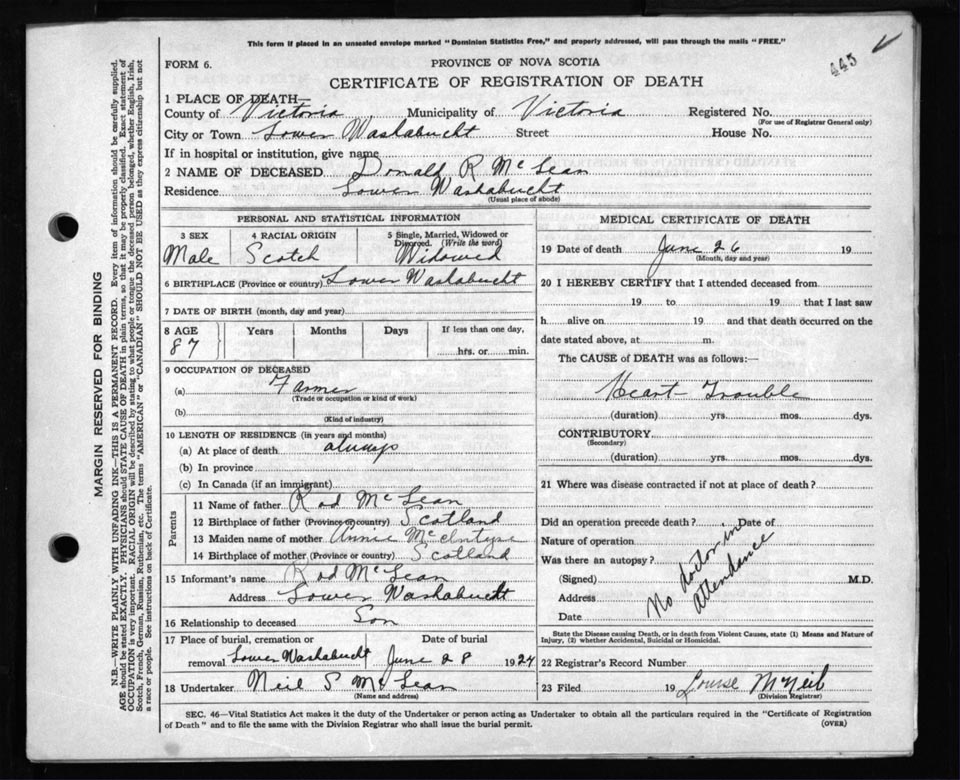 This form if placed in an unsealed envelope marked "Dominion Statistics Free," and properly addressed, will pass through the mails "FREE."
445
FORM 6.
PROVINCE OF NOVA SCOTIA
CERTIFICATE OF REGISTRATION OF DEATH
1 PLACE OF DEATH—
County of Victoria Municipality of Victoria Registered No.
(For use of Registrar General only)
City or Town Lower Washabucht Street House No.
If in hospital or institution, give name
2 NAME OF DECEASED Donald R McLean
Residence Lower Washabucht
(Usual place of abode)
PERSONAL AND STATISTICAL INFORMATION
3 SEX 4 RACIAL ORIGIN 5 Single, Married, Widowed or Divorced. (Write the word)
Male Scotch Widowed
6 BIRTHPLACE (Province or country) Lower Washabucht
7 DATE OF BIRTH (month, day and year)
8 AGE Years Months Days If less than one day,
87 hrs. or min.
9 OCCUPATION OF DECEASED
(a) Farmer
(Trade or occupation or kind of work)
(b)
(Kind of industry)
10 LENGTH OF RESIDENCE (in years and months)
(a) At place of death always
(b) In province
(c) In Canada (if an immigrant)
Parents
11 Name of father Rod McLean
12 Birthplace of father (Province or country) Scotland
13 Maiden name of mother Annie McIntyre
14 Birthplace of mother (Province or country) Scotland
15 Informant's name Rod McLean
Address Lower Washabucht
16 Relationship to deceased Son
17 Place of burial, cremation or Date of burial
removal Lower Washabucht June 28 1924
18 Undertaker Neil S McLean
(Name and address)
MEDICAL CERTIFICATE OF DEATH
19 Date of death June 26 19
(Month, day and year)
20 I HEREBY CERTIFY that I attended deceased from
19 to 19 that I last saw
h alive on 19 and that death occurred on the
date stated above, at m.
The CAUSE of DEATH was as follows:—
Heart Trouble
(duration) yrs. mos. dys.
CONTRIBUTORY
(Secondary)
(duration) yrs. mos. dys.
21 Where was disease contracted if not at place of death?
Did an operation precede death? Date of
Nature of operation
Was there an autopsy?
(Signed) M.D.
Address
Date
No doctor in
attendance
State the Disease causing Death, or in death from Violent Causes, state (1) Means and Nature of
Injury, (2) whether Accidental, Suicidal or Homicidal.
22 Registrar's Record Number
23 Filed 19 Louise McNeil
(Division Registrar)
SEC. 46—Vital Statistics Act makes it the duty of the Undertaker or person acting as Undertaker to obtain all the particulars required in the "Certificate of Registration
of Death" and to file the same with the Division Registrar who shall issue the burial permit.
(OVER)
MARGIN RESERVED FOR BINDING
N.B.—WRITE PLAINLY WITH UNFADING INK—THIS IS A PERMANENT RECORD. Every item of information should be carefully supplied.
AGE should be stated EXACTLY. PHYSICIANS should STATE CAUSE OF DEATH in plain terms, so that it may be properly classified. Exact statement of
OCCUPATION is very important. RACIAL ORIGIN will be described by stating to what people or tongue the deceased person belonged, whether English, Irish,
Scotch, French, German, Russian, Ruthenian, etc. The terms "AMERICAN" or "CANADIAN" SHOULD NOT BE USED as they express citizenship but not
a race or people. See instructions on back of Certificate.